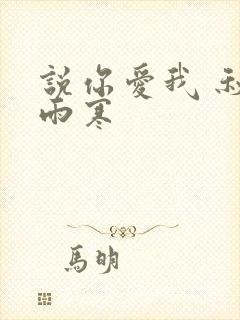 說你愛我
雨寒
馬明